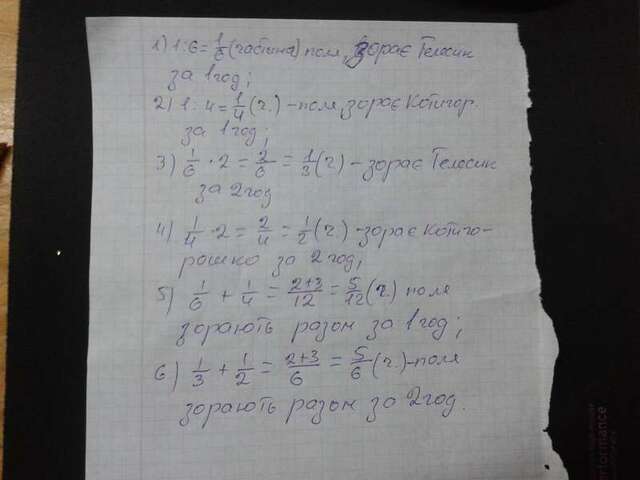 1) 1:6=1/6 (частина) поля, зорає Телесик
за 1год;
2) 1:4=1/4(ч.)-поля, зорає Котигор.
за 1год;
3) 1/6 · 2 = 2/6 = 1/3(ч) - зорає Телесик
за 2год
4) 1/4 · 2 = 2/4 = 1/2(ч.) - зорає Котиго-
рошко за 2 год;
5) 1/6 + 1/4 = 2+3/12 = 5/12(ч.) поля
зорають разом за 1год;
6) 1/3 + 1/2 = 2+3/6 = 5/6(ч.)-поля
зорають разом за 2год.
performance